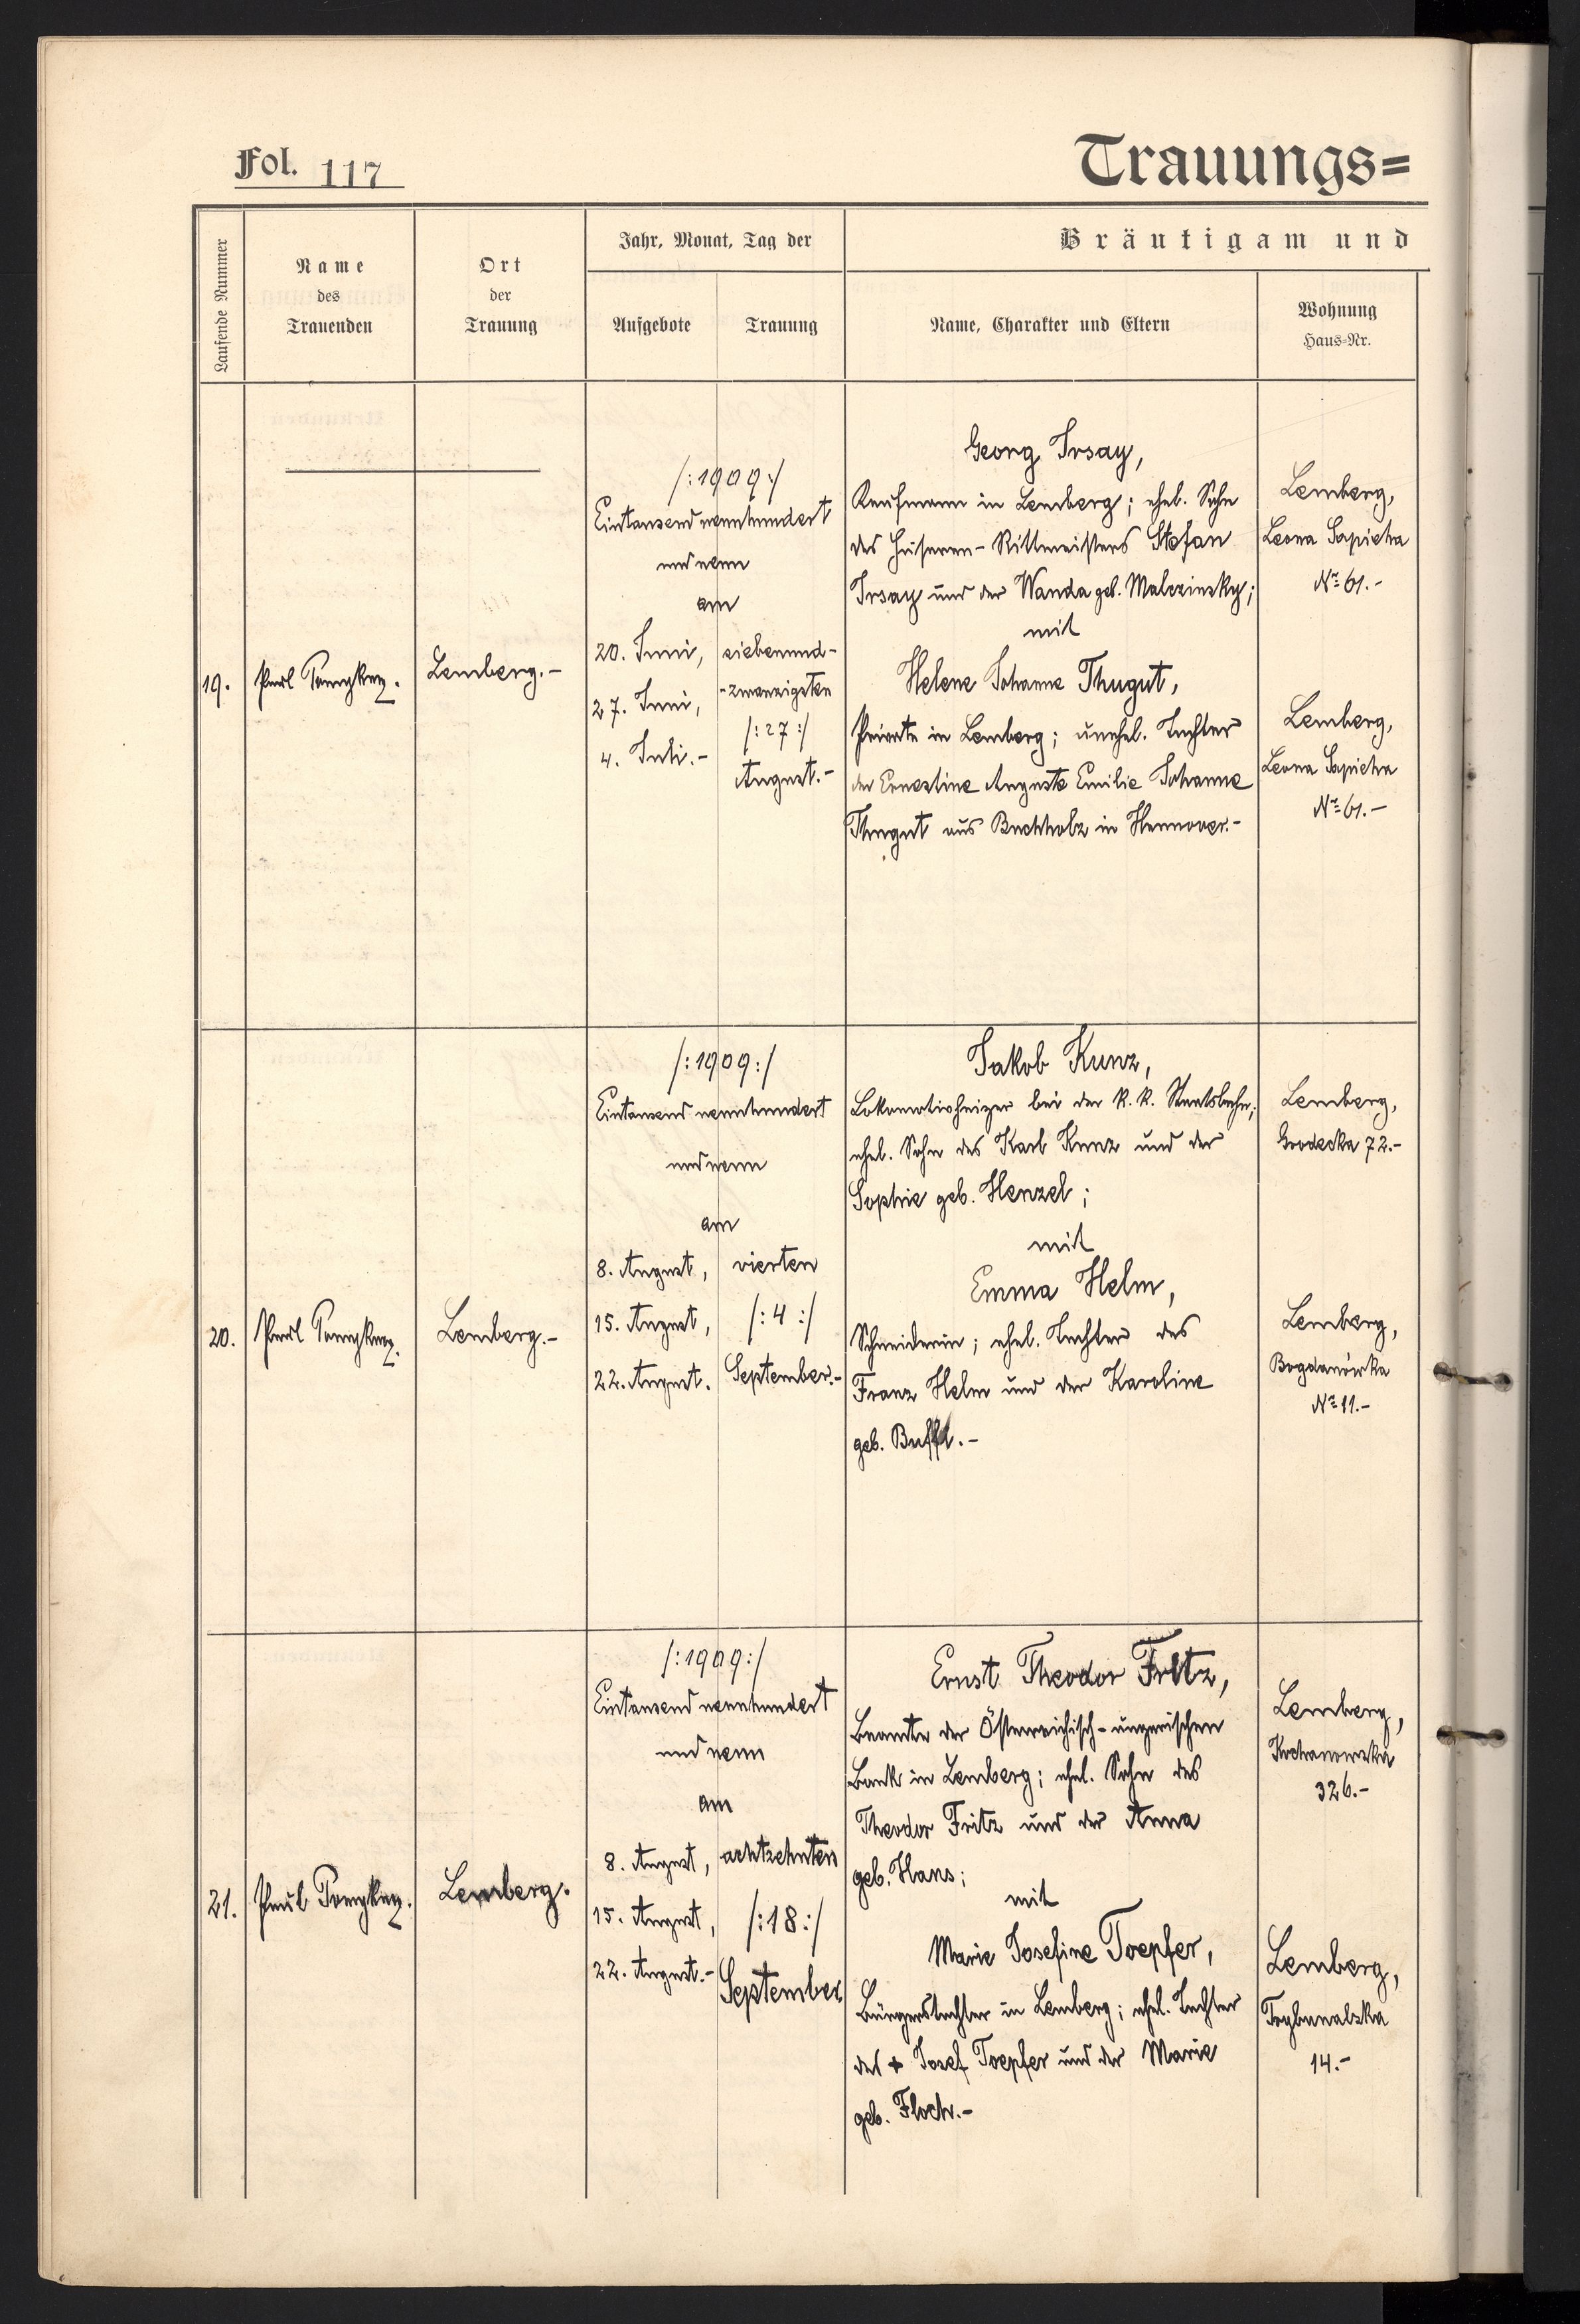 Fol. 117
Trauungs=
Laufende Nummer
Name
des
Trauenden
Ort
der
Trauung
Jahr, Monat, Tag der
Aufgebote
Trauung
Bräutigam und
Name, Charakter und Eltern
Wohnung
Haus=Nr.
19.
Paul
Lemberg.-
/:1909:/
Eintausend neunhundert
und neun
am
20. Juni,
27. Juni,
4. Juli.-
siebenund-
-zwanzigsten
/:27:/
August.-
Georg Irsay,
Kaufmann in Lemberg; ehel. Sohn
des Husaren-Rittmeisters Stefan
Irsay und der Wanda geb. Malezinsky;
mit
Helene Johanne Thugut,
Private in Lemberg; unehel. Tochter
der Ernestine Auguste Emilie Johanne
Thugut aus Buchholz in Hannover.-
Lemberg,
Leona Sapieha
Nr. 61.-
Lemberg,
Leona Sapieha
Nr. 61.-
20.
Paul
Lemberg.-
/:1909:/
Eintausend neunhundert
und neun
am
8. August,
15. August,
22. August.
vierten
/:4:/
September.-
Jakob Kunz,
Lokomotivheizer bei der k. k. Staatsbahn;
ehel. Sohn des Karl Kunz und der
Sophie geb. Henzel;
mit
Emma Helm,
Schneiderin; ehel. Tochter des
Franz Helm und der Karoline
geb.
Lemberg,
Grodecka 72.-
Lemberg,
Bogdanówka
Nr. 11.-
21.
Paul
Lemberg.
/:1909:/
Eintausend neunhundert
und neun
am
8. August,
15. August,
22. August.-
achtzehnten
/:18:/
September
Ernst Theodor Fritz,
Beamte der Österreichisch-ungarischen
Bank in Lemberg; ehel. Sohn des
Theodor Fritz und der Anna
geb. Hans;
mit
Marie Josefine Toepfer,
Bürgerstochter in Lemberg; ehel. Tochter
des + Josef Toepfer und der Marie
geb. Floch.-
Lemberg,
326.-
Lemberg,
Trybunalska
14.-